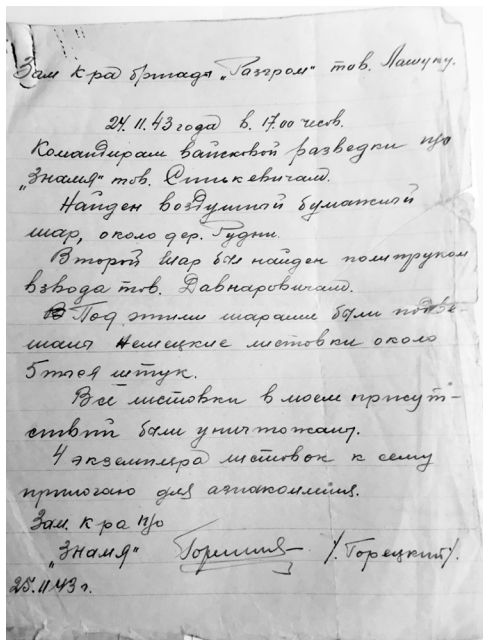 Зам к-ра бригады „Разгром" тов. Лашуку.
24.11.43 года в 17.00 часов.
Командирам вайсковой разведки п/о
„Знамя" тов. Синькевичам.
Найден воздушный бумажный
шар, около дер. Рудни.
Второй шар был найден политруком
взвода тов. Давнаровичам.
Под этими шарами были подве-
шаны Немецкие листовки около
5 тысяч штук.
Все листовки в моем присут-
ствий были уничтожаны.
4 экземпляра листовок к сему
прилогаю для азнакомления.
Зам. к-ра п/о
„Знамя" /Горецкий/.
25.11.43 г.